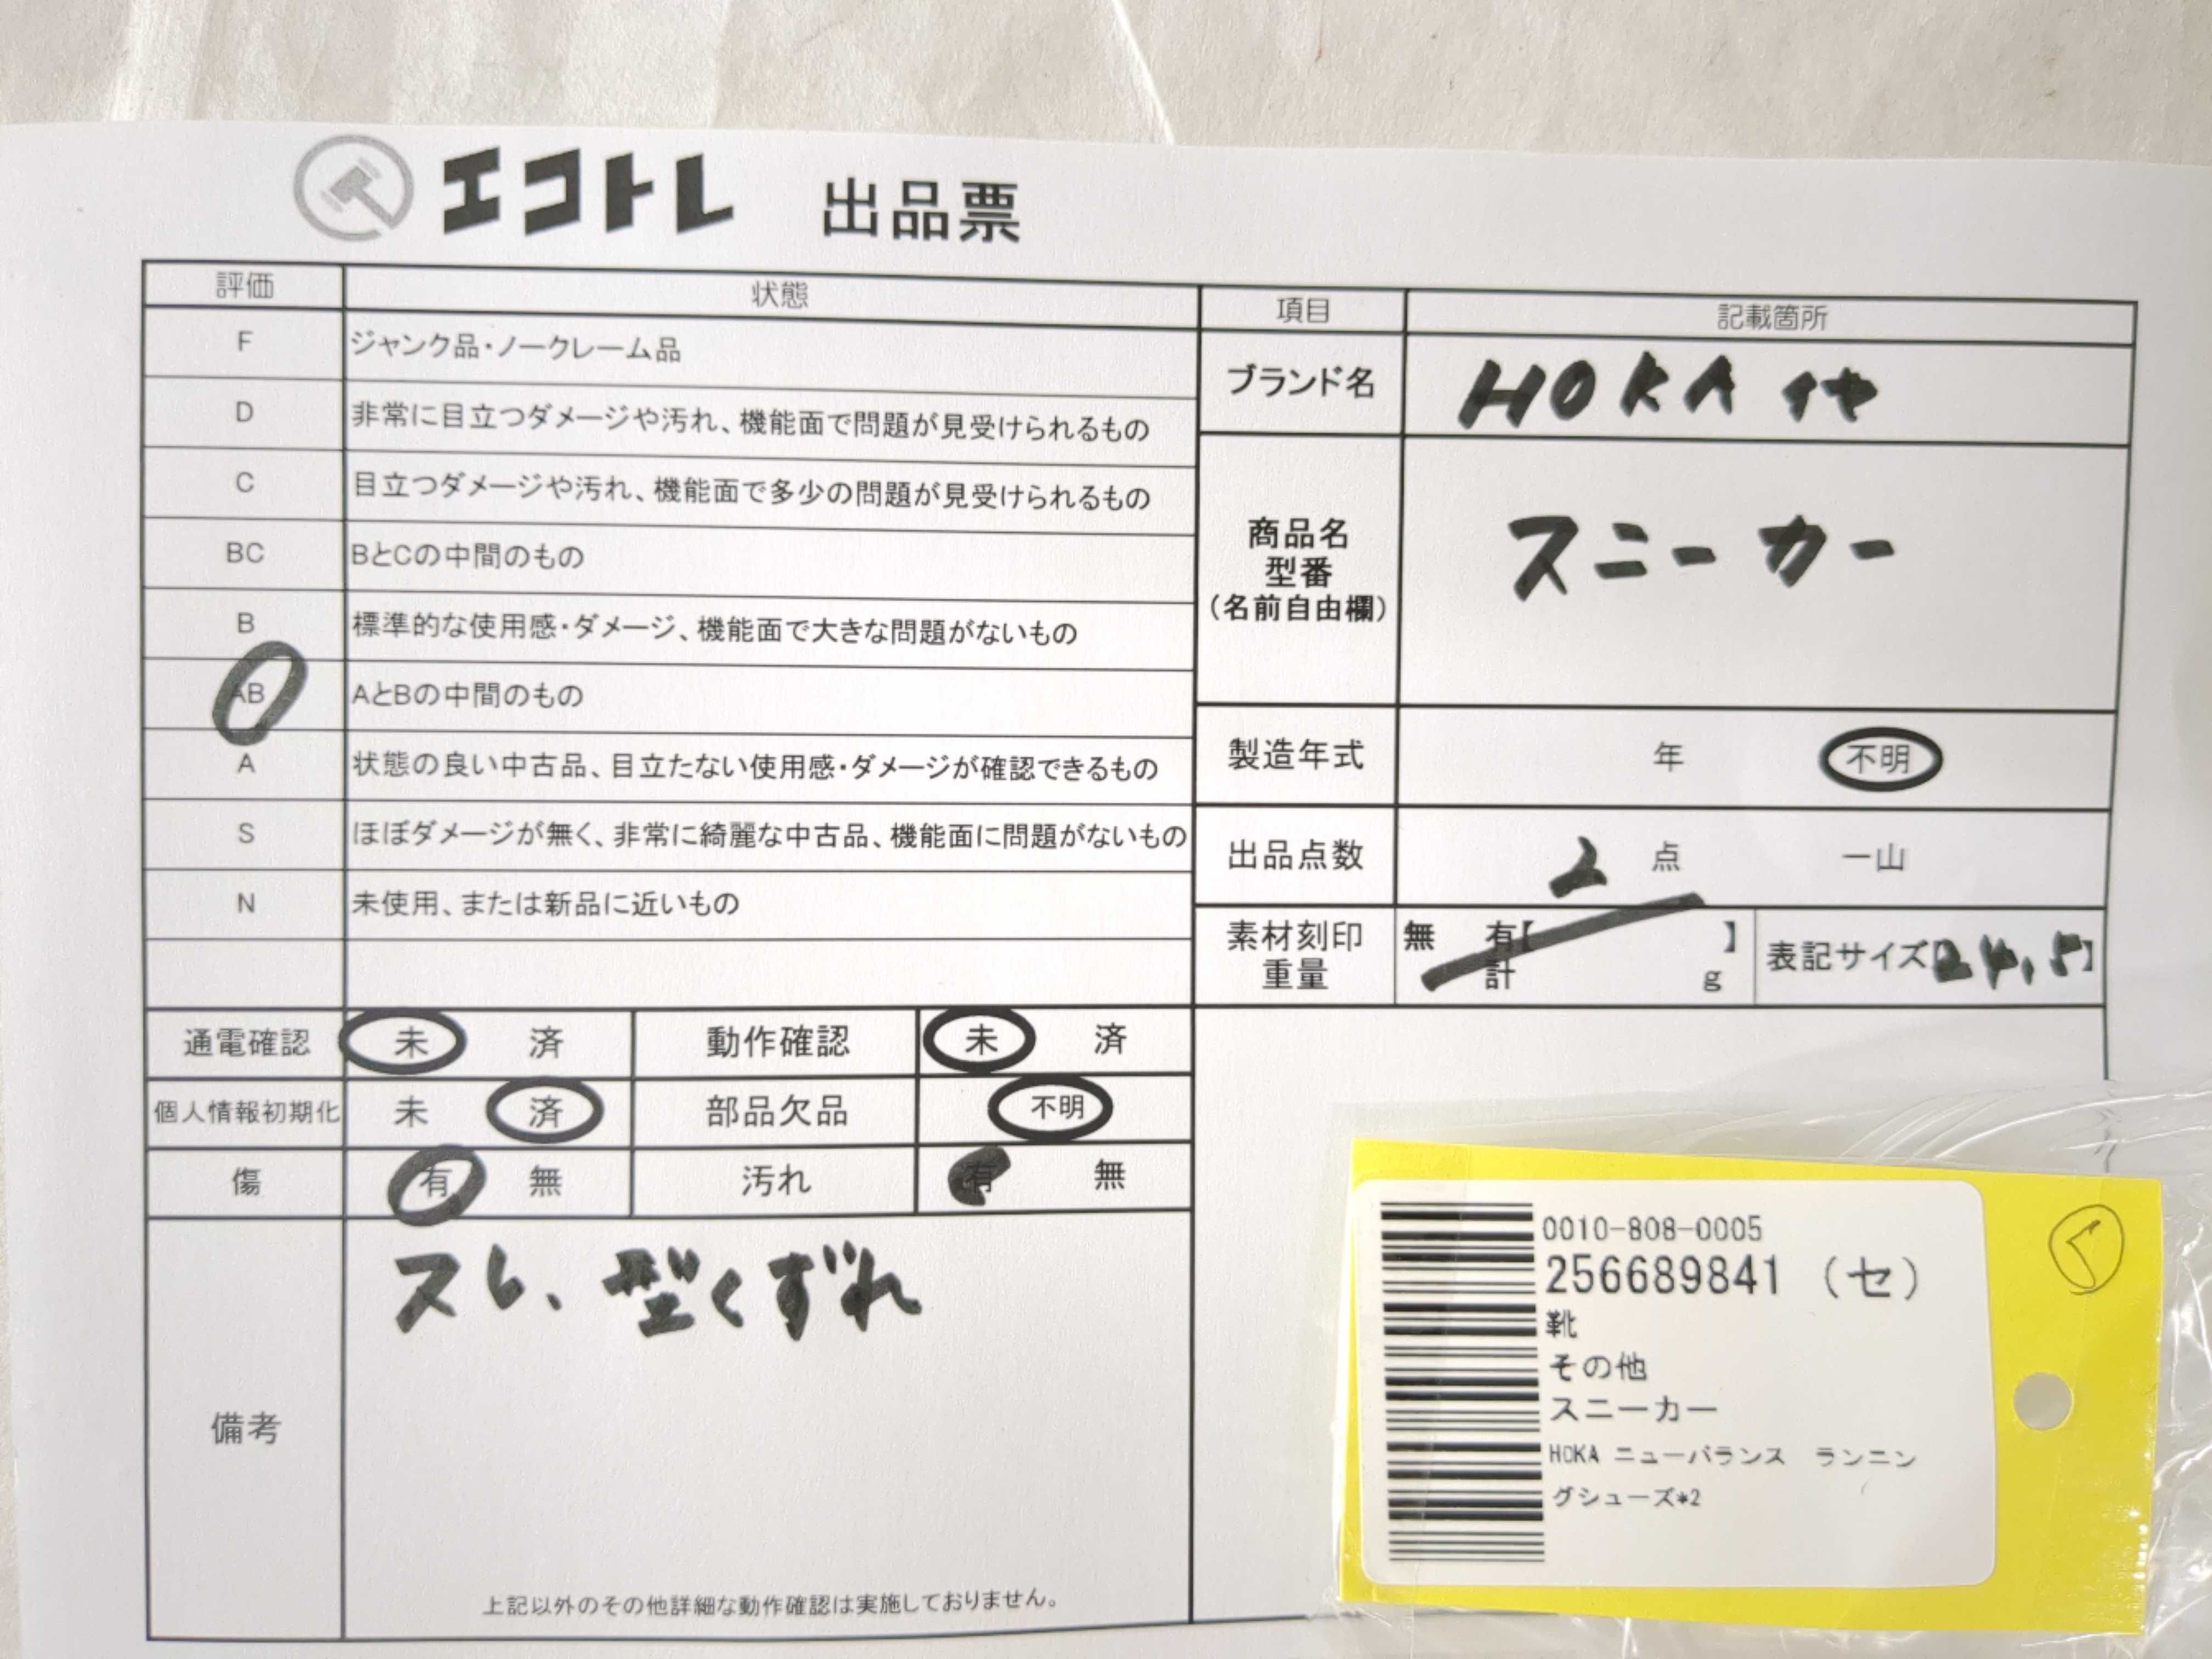 エコトレ 出品票
評価 状態
F ジャンク品・ノークレーム品
D 非常に目立つダメージや汚れ、機能面で問題が見受けられるもの
C 目立つダメージや汚れ、機能面で多少の問題が見受けられるもの
BC BとCの中間のもの
B 標準的な使用感・ダメージ、機能面で大きな問題がないもの
AB AとBの中間のもの
A 状態の良い中古品、目立たない使用感・ダメージが確認できるもの
S ほぼダメージが無く、非常に綺麗な中古品、機能面に問題がないもの
N 未使用、または新品に近いもの
項目 記載箇所
ブランド名 HOKA 他
商品名
型番
(名前自由欄)
スニーカー
製造年式 年 不明
出品点数 2 点 一山
素材刻印 無 有【 】
重量 計 g
表記サイズ【24.5】
通電確認 未 済 動作確認 未 済
個人情報初期化 未 済 部品欠品 不明
傷 有 無 汚れ 有 無
備考
スレ、型くずれ
上記以外のその他詳細な動作確認は実施しておりません。
0010-808-0005
256689841 (セ)
靴
その他
スニーカー
HOKA ニューバランス ランニン
グシューズ*2